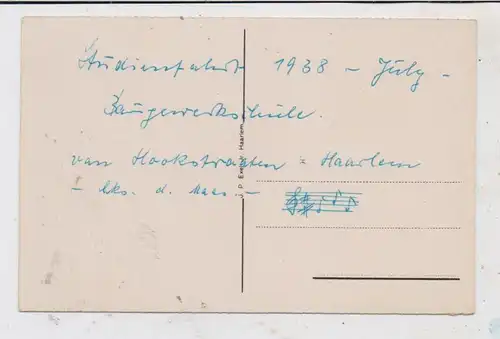 Studienfahrt 1938 – July –
Baugewerkschule.
van Hookstraaten x Haarlem
– lks. d. Maas. –
J. P. Exel, Haarlem